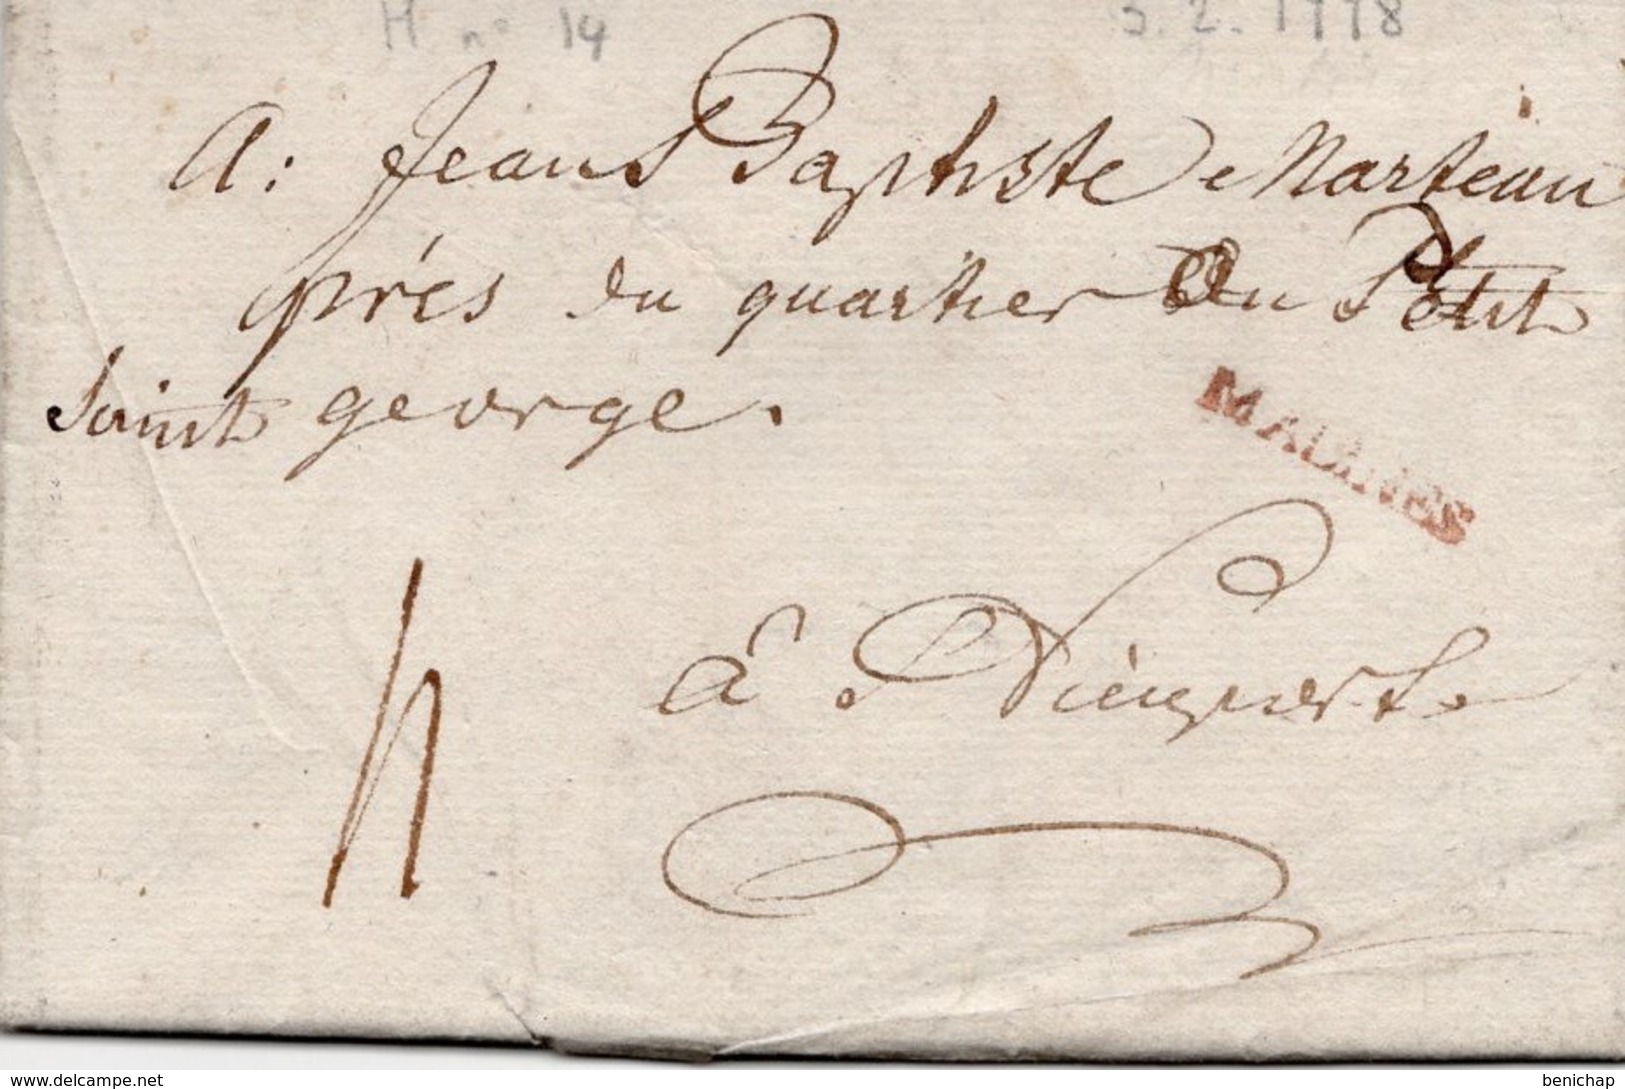 H no 14
5. 2. 1778
A: Jean Baptiste Marteau
près du quartier du Petit
Saint george.
MALINES
4
à Nieuport.
delcampe.net
benichap